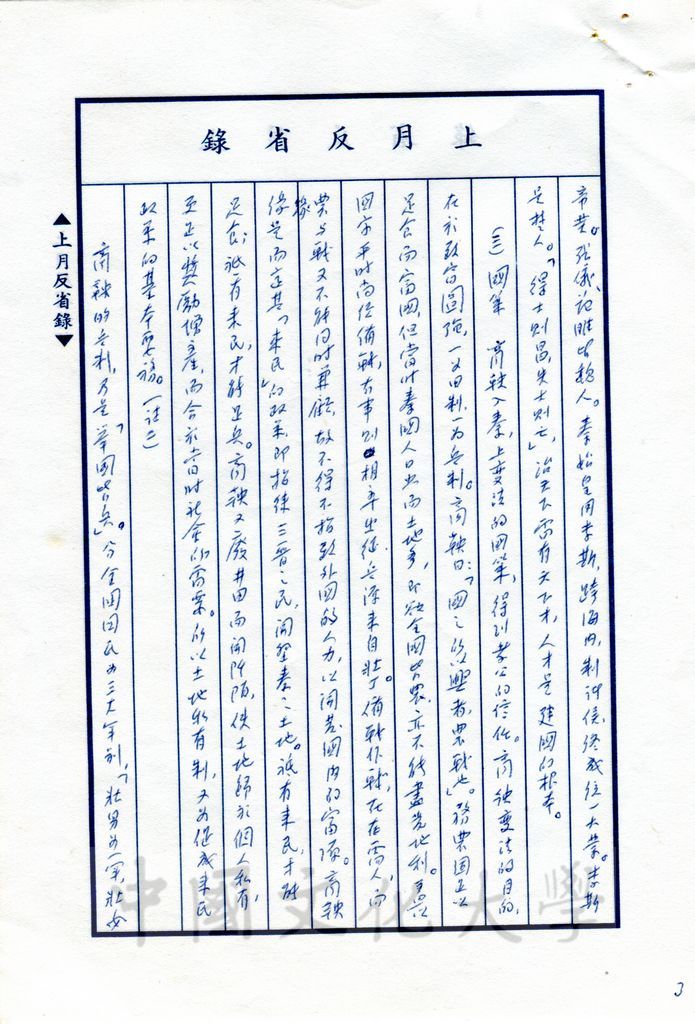 上月反省錄
帝業。張儀、范睢皆魏人。秦始皇用李斯,跨海內,制諸侯,終成統一大業。李斯
是楚人。「得士則昌,失士則亡」治天下需有天下才,人才是建國的根本。
(三)國策 商鞅入秦,上變法的國策,得到孝公的信任。商鞅變法的目的,
在於致富圖強,一為田制,一為兵制。商鞅曰:「國之所以興者,農戰也」。務農固足以
足食而富國,但當時秦國人口少而土地多,即如全國皆農,亦不能盡其地利。
國家平時尚須備戰,有事則相率出征,兵源來自壯丁,備戰作戰,在在需人,而
農與戰又不能同時兼顧,故不得不招致外國的人力,以開發國內的富源。商鞅
緣是而定其「來民」的政策,即招徠三晉之民,開墾秦之土地。祇有來民,才能
足食;祇有來民,才能足兵。商鞅又廢井田而開阡陌,俟土地歸於個人私有,
更足以獎勵增產,而合於當時社會的需要。所以土地私有制,又為促成來民
政策的基本要務。(註二)
商鞅的兵制,乃是「舉國皆兵」。分全國國民為三大年別,「壯男為一軍,壯女
▲上月反省錄▼
中國文化大學
3